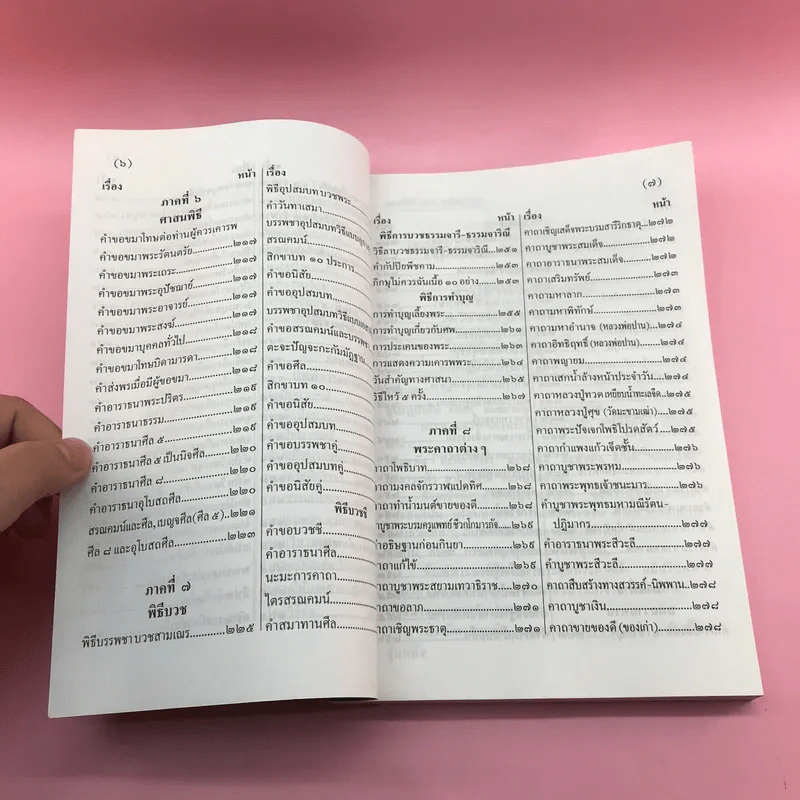 (๖)
เรื่อง หน้า
ภาคที่ ๖
ศาสนพิธี
คำขอขมาโทษต่อท่านผู้ควรเคารพ
คำขอขมาพระรัตนตรัย............๒๑๗
คำขอขมาพระเถระ............๒๑๗
คำขอขมาพระอุปัชฌาย์............๒๑๗
คำขอขมาพระอาจารย์............๒๑๗
คำขอขมาพระสงฆ์............๒๑๗
คำขอขมาบุคคลทั่วไป............๒๑๘
คำขอขมาโทษบิดามารดา............๒๑๘
คำส่งพรเมื่อมีผู้ขอขมา............๒๑๘
คำอาราธนาพระปริตร............๒๑๙
คำอาราธนาธรรม............๒๑๙
คำอาราธนาศีล ๕............๒๑๙
คำอาราธนาศีล ๕ เป็นนิจศีล............๒๒๐
คำอาราธนาศีล ๘............๒๒๐
คำอาราธนาอุโบสถศีล............๒๒๐
สรณคมน์และศีล, เบญจศีล (ศีล ๕)......๒๒๑
ศีล ๘ และอุโบสถศีล............๒๒๓
ภาคที่ ๗
พิธีบวช
พิธีบรรพชา บวชสามเณร............๒๒๕
เรื่อง
พิธีอุปสมบท บวชพระ
คำวันทาเสมา
บรรพชาอุปสมบทวิธีแบบ
สรณคมน์
สิกขาบท ๑๐ ประการ
คำขอนิสัย
คำขออุปสมบท
บรรพชาอุปสมบทวิธี
คำขอสรณคมน์และบรรพชา
ตะจะปัญจะกะกัมมัฏฐาน
คำขอศีล
สิกขาบท ๑๐
คำขอนิสัย
คำขออุปสมบท
คำขอบรรพชาคู่
คำขออุปสมบทคู่
คำขอนิสัยคู่
พิธีบวชชี
คำขอบวชชี
คำอาราธนาศีล
นะมะการคาถา
ไตรสรณคมน์
คำสมาทานศีล
(๗)
เรื่อง หน้า
พิธีการบวชธรรมจารี-ธรรมจาริณี
วิธีลาบวชธรรมจารี-ธรรมจาริณี....๒๕๑
คำกัปปิยพืชคาม............๒๕๓
ภิกษุไม่ควรฉันเนื้อ ๑๐ อย่าง............๒๕๓
พิธีการทำบุญ
การทำบุญเลี้ยงพระ............๒๕๕
การทำบุญเกี่ยวกับศพ............๒๖๑
การประเคนของพระ............๒๖๓
การแสดงความเคารพพระ............๒๖๓
วันสำคัญทางศาสนา............๒๖๕
วิธีไหว้ ๕ ครั้ง............๒๖๗
ภาคที่ ๘
พระคาถาต่าง ๆ
คาถาโพธิบาท............๒๖๘
คาถามงคลจักรวาาแปดทิศ............๒๖๘
คาถาทำน้ำมนต์ขายของดี............๒๖๘
คำบูชาพระบรมครูแพทย์ ชีวกโกมารภัจ..๒๖๙
คำอธิษฐานก่อนกินยา............๒๖๙
คาถาแก้ไข้............๒๖๙
คาถาบูชาพระสยามเทวาธิราช............๒๗๐
คาถาขอลาภ............๒๗๑
คาถาเชิญพระธาตุ............๒๗๑
เรื่อง หน้า
คาถาเชิญเสด็จพระบรมสารีริกธาตุ....๒๗๒
คาถาบูชาพระสมเด็จ............๒๗๒
คาถาอาราธนาพระสมเด็จ............๒๗๒
คาถาเสริมทรัพย์............๒๗๓
คาถามหาลาภ............๒๗๓
คาถามหาพิทักษ์............๒๗๓
คาถามหาอำนาจ (หลวงพ่อปาน)....๒๗๔
คาถาอิทธิฤทธิ์ (หลวงพ่อปาน)............๒๗๔
คาถาพญายม............๒๗๔
คาถาเสกน้ำล้างหน้าประจำวัน............๒๗๔
คาถาหลวงปู่ทวด เหยียบน้ำทะเลจืด....๒๗๕
คาถาหลวงปู่ศุข (วัดมะขามเฒ่า)......๒๗๕
คาถาพระปัจเจกโพธิโปรดสัตว์............๒๗๕
คาถากำแพงแก้วเจ็ดชั้น............๒๗๖
คาถาบูชาพระพรหม............๒๗๖
คาถาพระพุทธเจ้าชนะมาร............๒๗๖
คำบูชาพระพุทธมหามณีรัตน-
ปฏิมากร............๒๗๗
คำอาราธนาพระสีวะลี............๒๗๗
คำบูชาพระสีวะลี............๒๗๗
คาถาสืบสร้างทางสวรรค์-นิพพาน....๒๗๘
คาถาบูชาเงิน............๒๗๘
คาถาขายของดี (ของเก่า)............๒๗๘